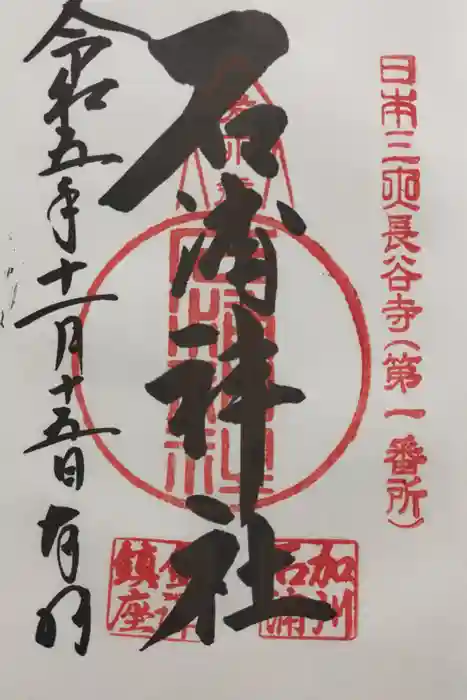 日本三 長谷寺(第一番所)
石浦神社
加州
石浦
金澤
鎮座
令和五年十一月十五日 有明